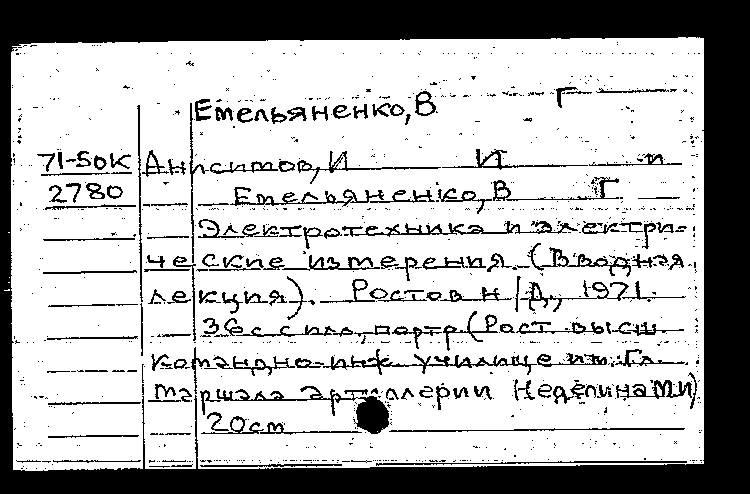 Емельяненко, В Г
71-50к Анисимов, И И и
2780 Емельяненко, В Г
Электротехника и электри-
ческие измерения. (Вводная
лекция). Ростов н/Д., 1971.
36с с илл., портр (Рост. высш.
командно-инж. училище им. Гл.
маршала артиллерии Неделина МИ)
20см